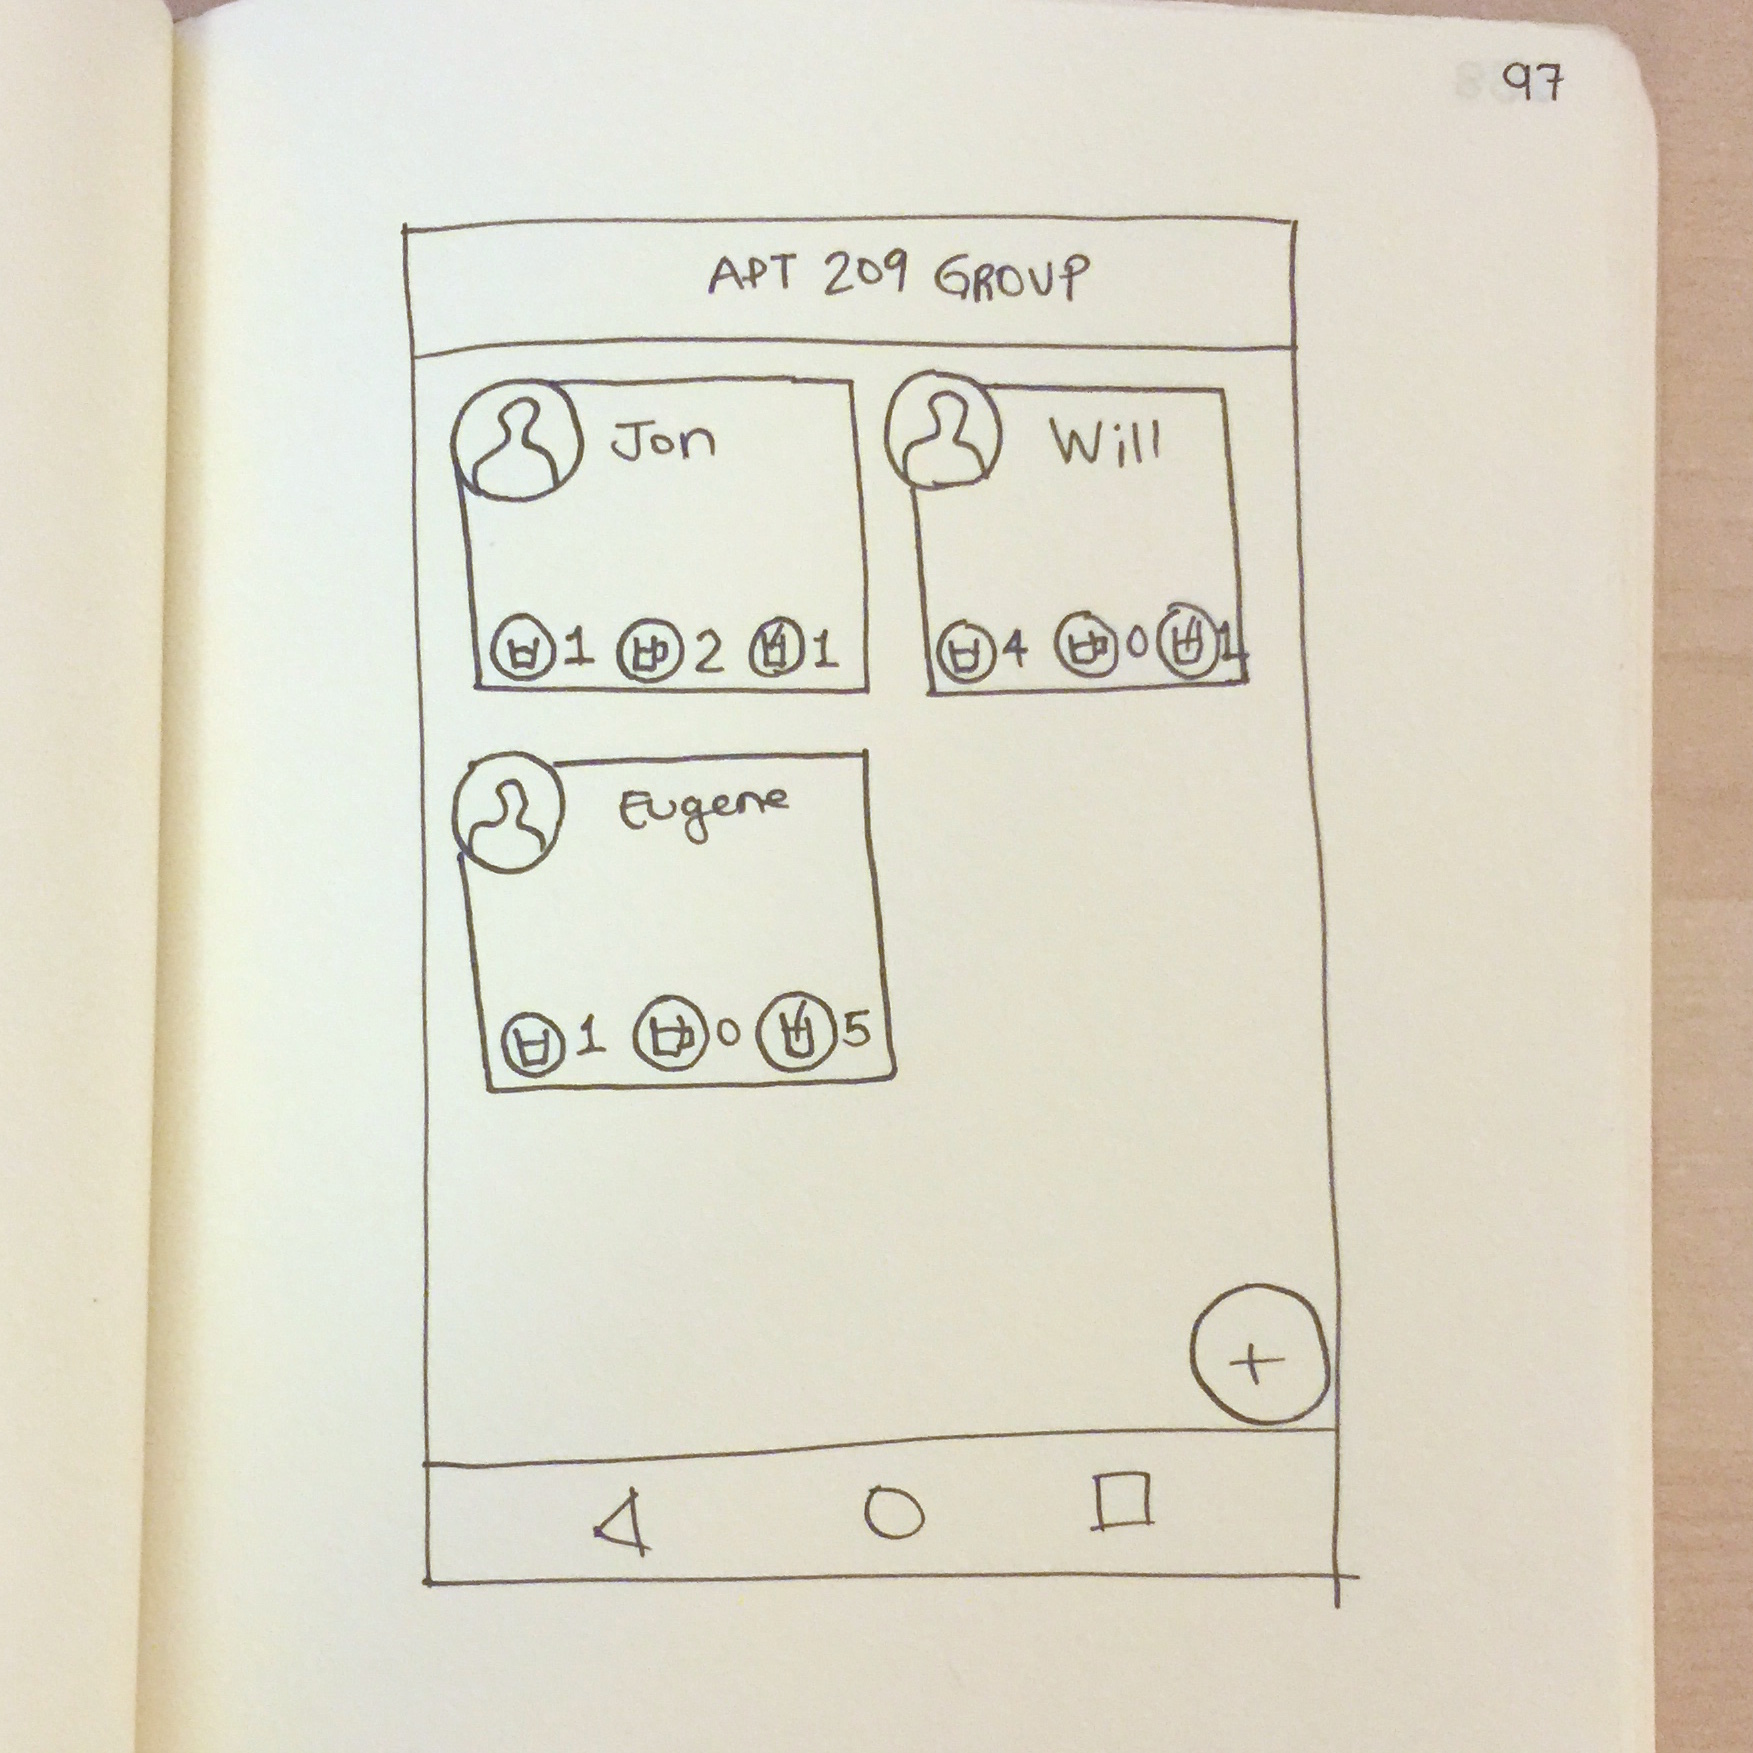 97
APT 209 GROUP
Jon
1 2 1
Will
4 0 1
Eugene
1 0 5
+